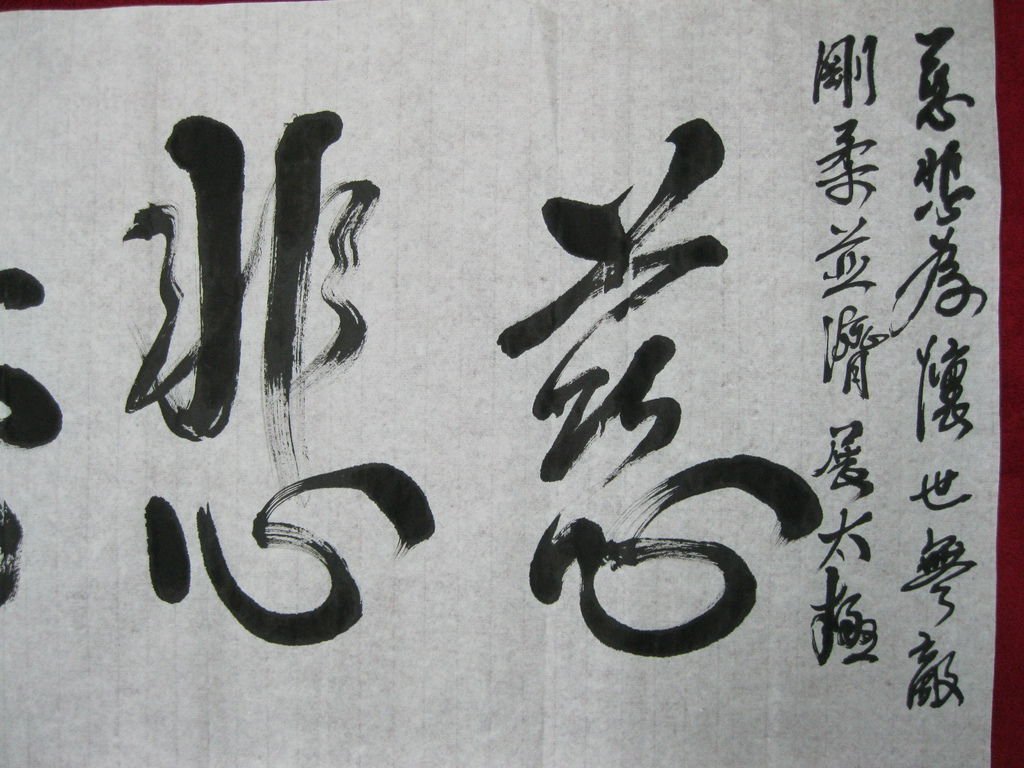 慈悲為懷世無敵
剛柔並濟展太極
慈悲